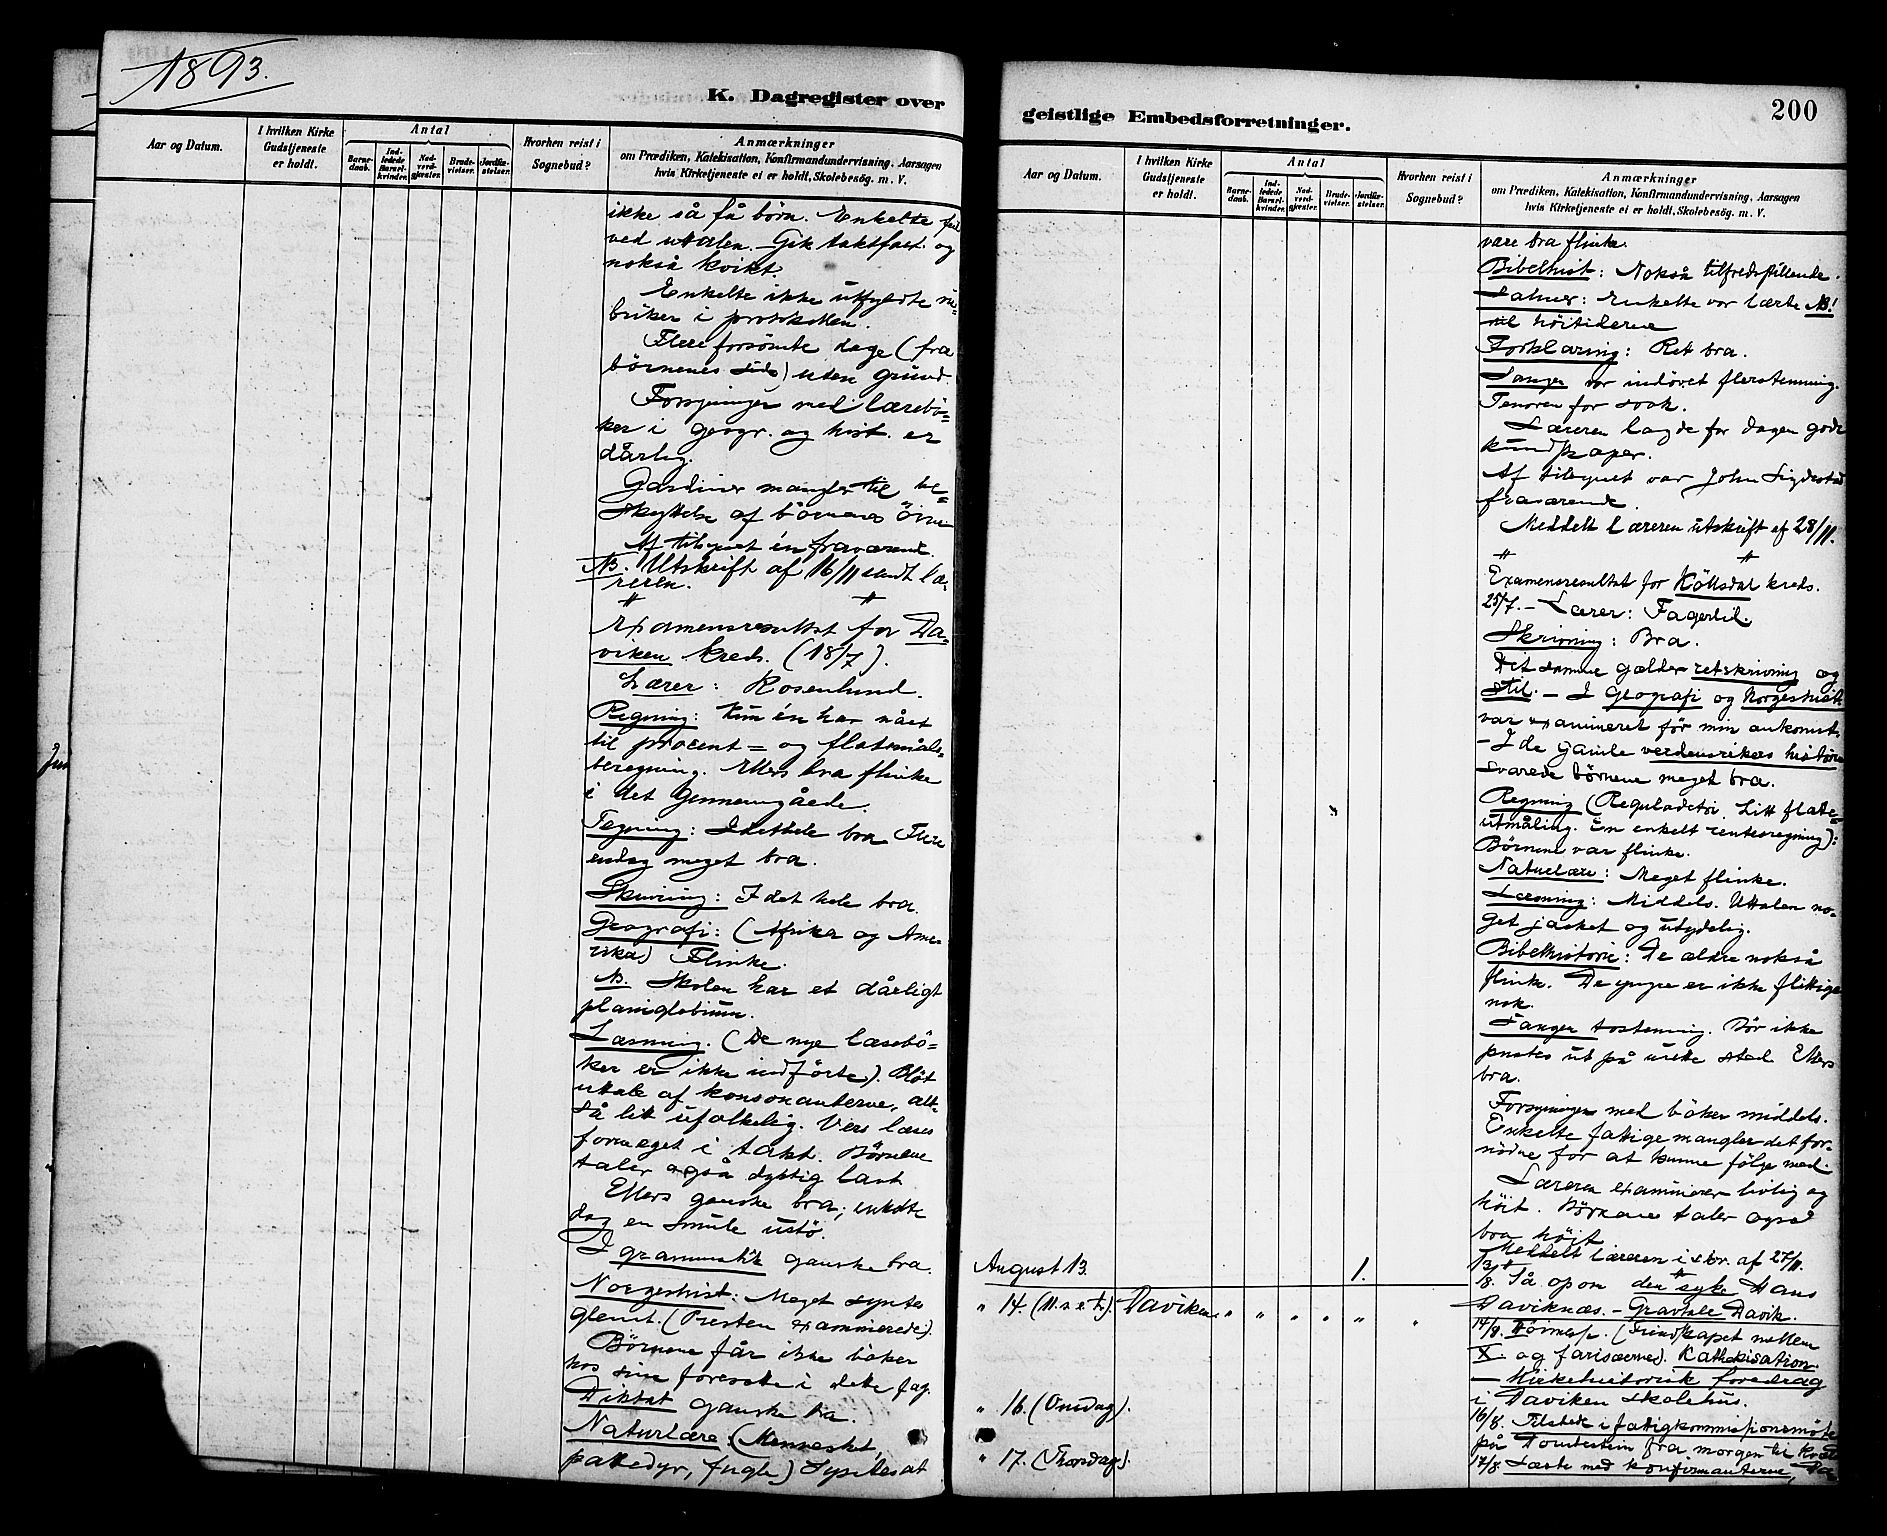 1893.
K. Dagregister over
Aar og Datum.
I hvilken Kirke
Gudstjeneste
er holdt.
Antal
Barne-
daab.
Ind-
ledede
Barsel-
kvinder.
Nad-
verd-
gjæster.
Brude-
vielser.
Jordfæ-
stelser.
Hvorhen reist i
Sognebud?
Anmærkninger
om Prædiken, Katekisation, Konfirmandundervisning, Aarsagen
hvis Kirketjeneste ei er holdt, Skolebesøg. m. V.
ikke så få børn. Enkelte feil
ved uttalen. Gik taktfast og
nokså kvikt.
Enkelte ikke utfyldte ru-
briker i protokollen.
Flere forsømte dage (fra
børnenes side) uten grund.
Forsyningen med lærebø-
ker i geogr. og hist. er
dårlig.
Gardiner mangler til be-
skyttelse af børnenes öine
Af tilsynet én fraværende.
NB. Utskrift af 16/11 sendt læ-
reren.
" "
Examensresultat for Da-
viken kreds. (18/7).
Lærer: Rosenlund.
Regning: Kun én har nået
til procent= og flatemåls-
beregning. Ellers bra flinke
i det gennemgåede.
Tegning: I det hele bra Flere
endog meget bra.
Skrivning: I det hele bra.
Geografi: (Afrika og Ame-
rika) Flinke.
NB. Skolen har et dårligt
planiglobium.
Læsning. (De nye læsebø-
ker er ikke indførte). Bløt
uttale af konsonanterne, alt-
så litt ufolkelig. Vers læses
formeget i takt. Børnene
taler også dygtig lavt
Ellers ganske bra; enkelte
dog en smule ustø.
I grammatik ganske bra.
Norgeshist: Meget syntes
glemt. (Presten examinerede).
Børnene får ikke bøker
hos sine foresatte i dette fag.
Diktat ganske bra.
Naturlære (Mennesket,
pattedyr, fugle) Syntes at
Jun
geistlige Embedsforretninger.
200
Aar og Datum.
I hvilken Kirke
Gudstjeneste
er holdt.
Antal
Barne-
daab.
Ind-
ledede
Barsel-
kvinder.
Nad-
verd-
gjæster.
Brude-
vielser.
Jordfæ-
stelser.
Hvorhen reist i
Sognebud?
Anmærkninger
om Prædiken, Katekisation, Konfirmandundervisning, Aarsagen
hvis Kirketjeneste ei er holdt, Skolebesøg. m. V.
være bra flinke.
Bibelhist: Nokså tilfredsstillende.
Salmer: Enkelte var lærte NB!
til høitiderne
Forklaring: Ret bra.
Sangen var indøvet flerstemmig.
Tenoren for svak.
Læreren lagde for dagen gode
kundskaper.
Af tilsynet var John Sigdestad
fraværende.
Meddelt læreren utskrift af 28/11.
" "
Examensresultat for Köllsdal kreds.
25/7. – Lærer: Fagerlil.
Skrivning: Bra.
Det samme gælder retskrivning og
stil. – I Geografi og Norgeshist.
var examineret før min ankomst.
– I de gamle verdensrikers historie
svarede børnene meget bra.
Regning (Reguladetri. Litt flate=
utmåling. En enkelt rentesregning):
Børnene var flinke.
Naturlære: Meget flinke.
Læsning: Middels. Uttalen no-
get jasket og utydelig.
Bibelhistorie: De ældre nokså
flinke. De yngre er ikke flittige
nok.
Sangen tostemmig. Bör ikke
pustes ut på urette sted Ellers
bra.
Forsyningen med bøker middels.
Enkelte fattige mangler det for-
nødne for at kunne følge med.
Læreren examinerer livlig og
höit. Børnene taler også
bra höjt
Meddelt læreren i skr. af 27/11.
August 13. 1.
13/8. Så op om den syke Hans
Daviknæs. – Gravtale Davik.
" 14. (11. s. e. tr.). Daviken " " " " " "
14/8. Höimesse. (Fiendskapet mellem
X. og farisæerne). Kathekisation.
– Kirkehistorisk foredrag
i Daviken skolehus.
" 16. (Onsdag).
16/8. Tilstede i fattigkommissionsmøte
på Domstein fra morgen til kveld
" 17. (Thorsdag).
17/8. Læste med konfirmanterne, Da